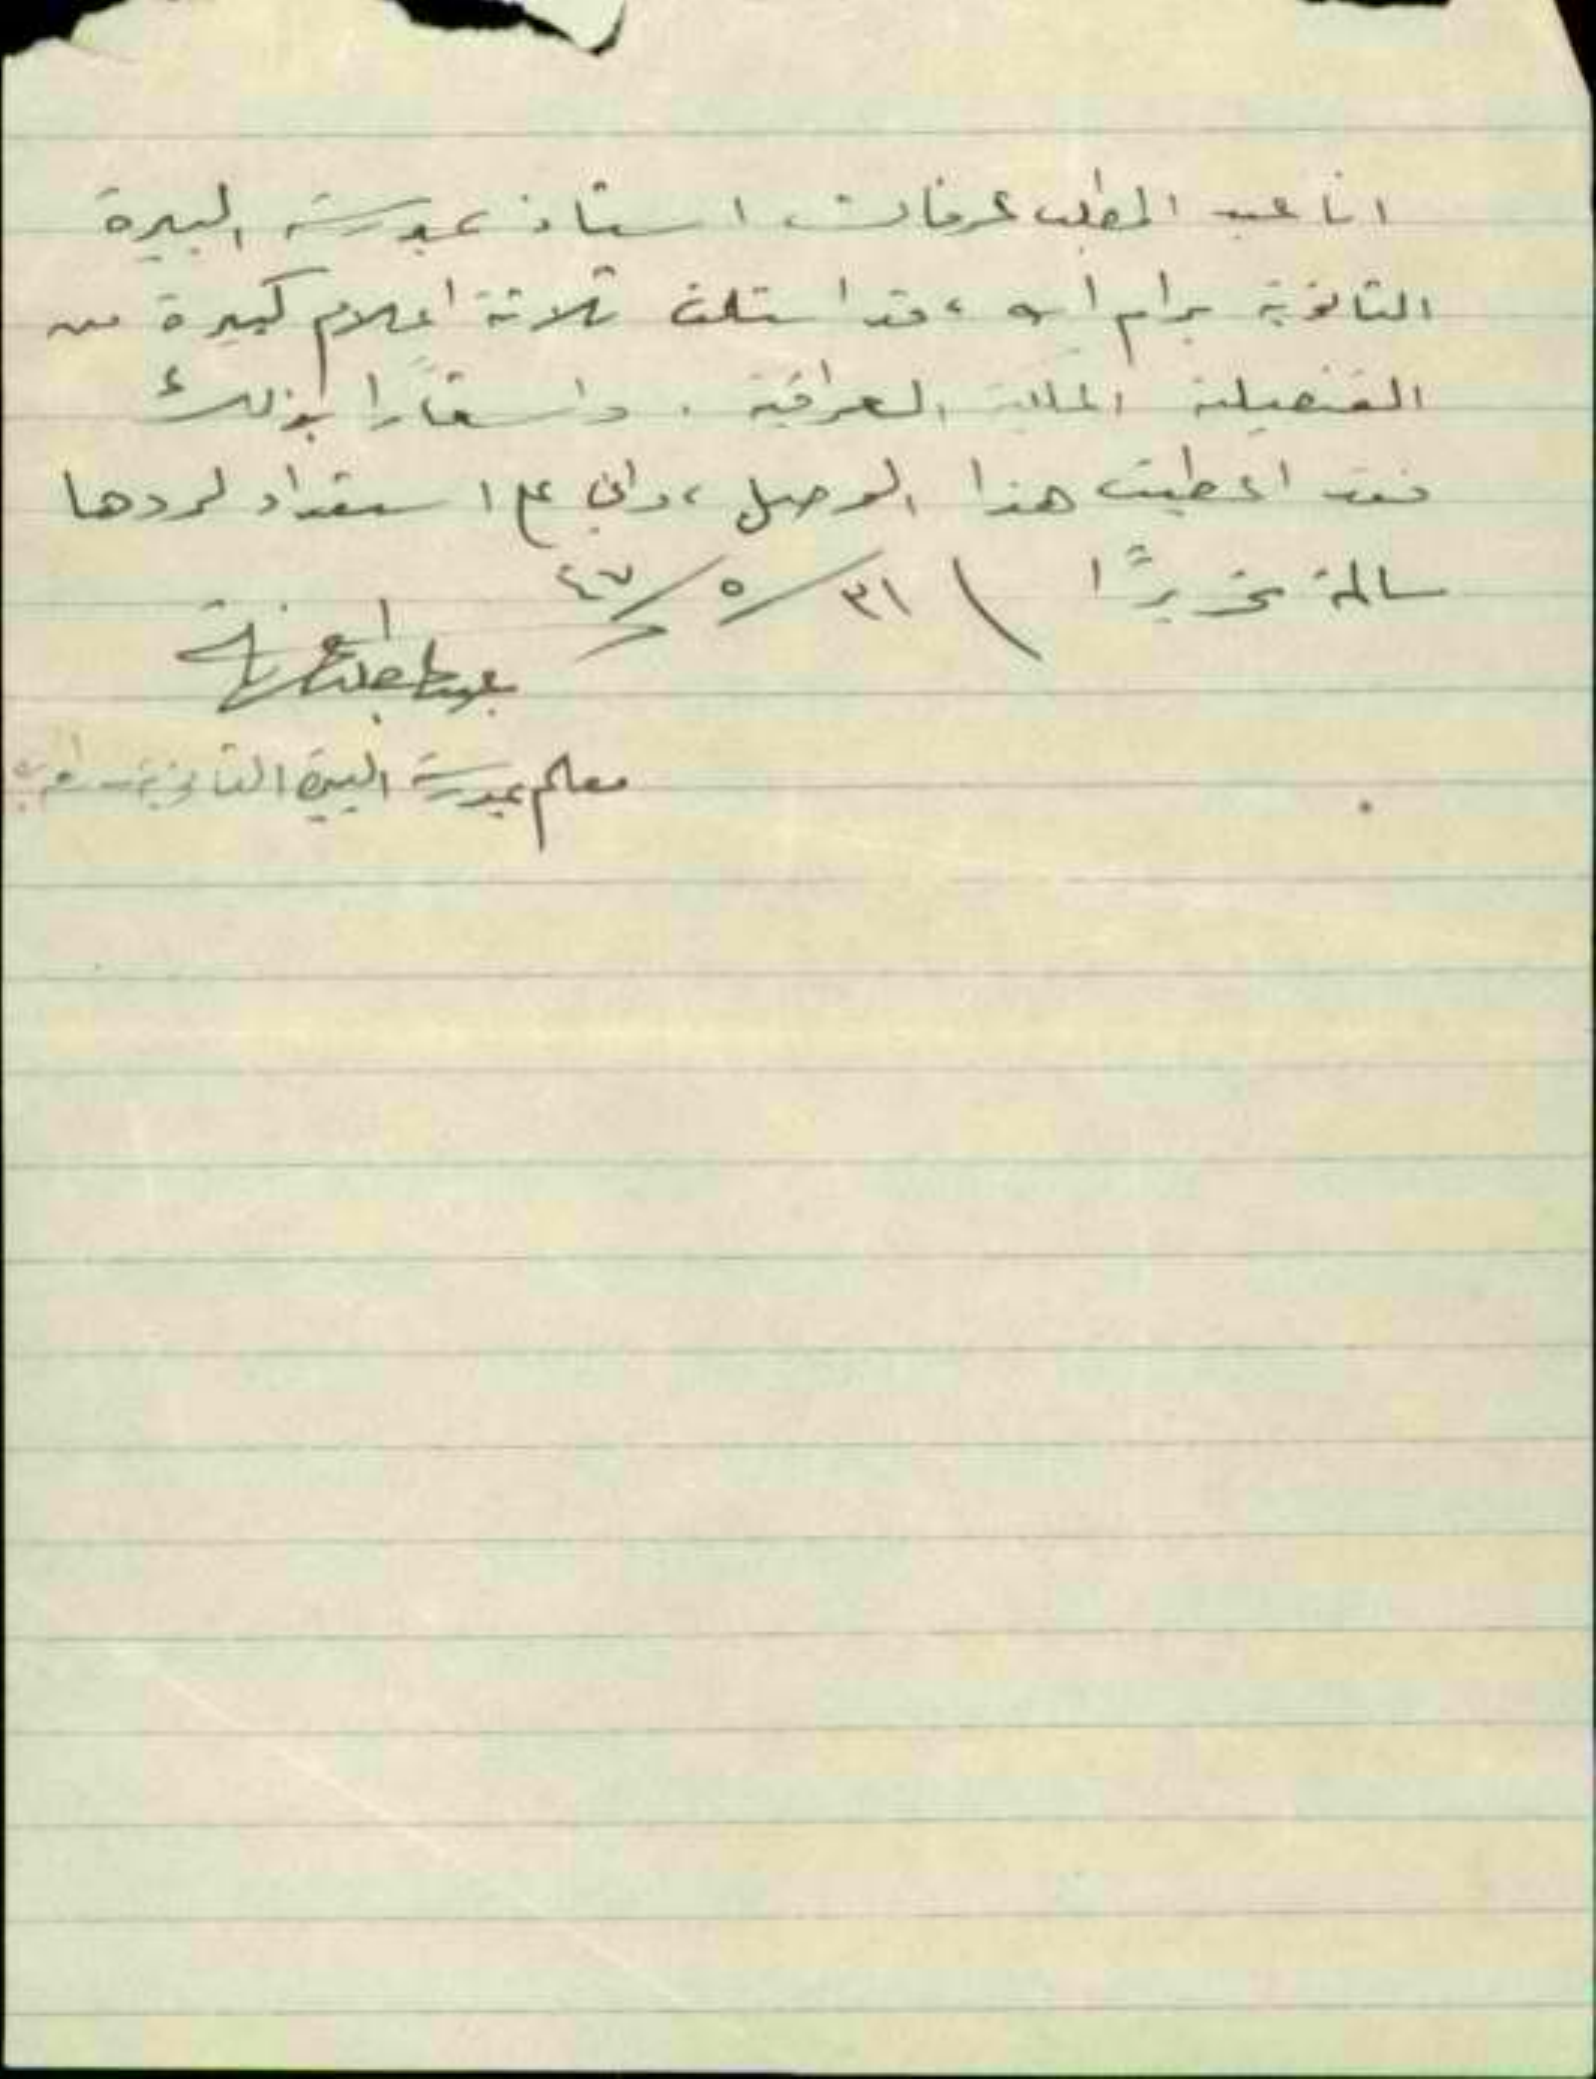 انا عبد المطلب عرفات استاذ بمدرسة البيرة
الثانوية برام الله، قد استلمت ثلاثة اعلام كبيرة من
القنصلية الملكية العراقية. واشعارا بذلك
فقد اعطيت هذا الوصل، واني على استعداد لردها
سالمة تحريرًا \ ٣١/٥/٤٧
عبد المطلب عرفات
معلم بمدرسة البيرة الثانوية